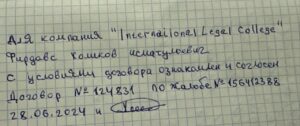 Для компания "International Legal College"
Фирдавс Холиков исматуллоевич
с условиями договора ознакомлен и согласен
Договор № 124831 по жалобе № 156412388
28.06.2024 и